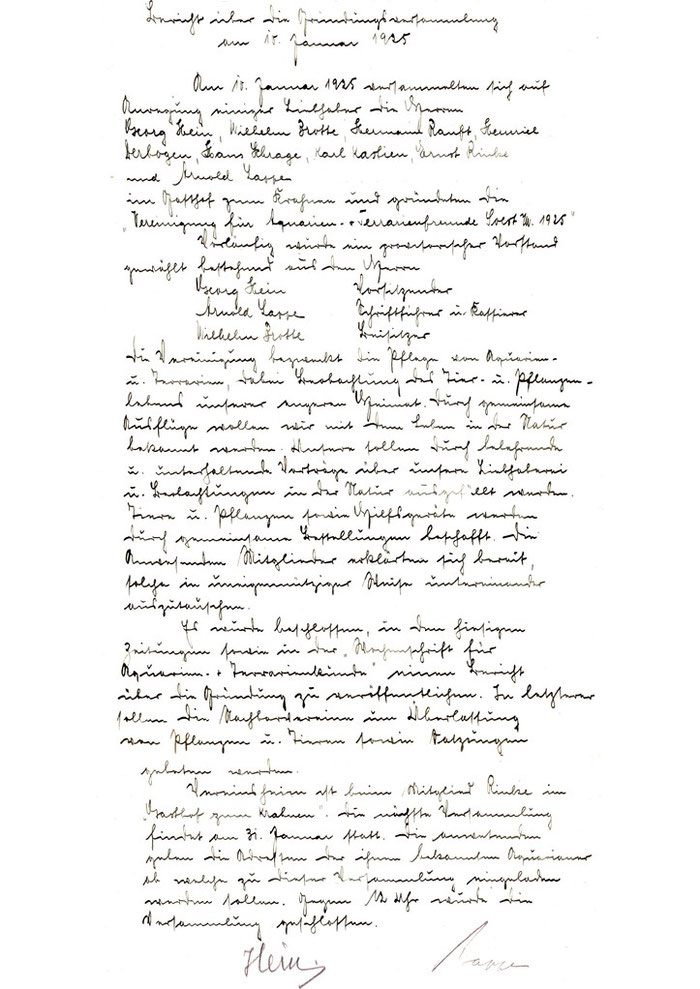 Bericht über die Gründungsversammlung
am 10. Januar 1925
Am 10. Januar 1925 versammelten sich auf
Anregung einiger Liebhaber die Herren
Georg Hein, Wilhelm Brotte, Hermann Ranft, Heinrich
Derbogen, Hans Schrage, Karl Kastien, Ernst Rinke
und Arnold Lappe
im Gasthof zum Krahnen und gründeten die
"Vereinigung für Aquarien- + Terrarienfreunde Soest W. 1925"
Vorläufig wurde ein provisorischer Vorstand
gewählt bestehend aus den Herren
Georg Hein Vorsitzender
Arnold Lappe Schriftführer u. Kassierer
Wilhelm Brotte Beisitzer
Die Vereinigung bezweckt die Pflege von Aquarien-
u. Terrarien, dabei Beobachtung des Tier- u. Pflanzen-
lebens unserer engeren Heimat. Durch gemeinsame
Ausflüge wollen wir mit dem Leben in der Natur
bekannt werden. sollen durch belehrende
u. unterhaltende Vorträge über unsere Liebhaberei
u. Beobachtungen in der Natur ausgefüllt werden.
Tiere u. Pflanzen sowie Hilfsgeräte werden
durch gemeinsame Bestellungen beschafft. Die
Anwesenden Mitglieder erklärten sich bereit,
solche in uneigennütziger Weise untereinander
auszutauschen.
Es wurde beschlossen, in den hiesigen
Zeitungen sowie in der "Wochenschrift für
Aquarien- + Terrarienkunde" einen Bericht
über die Gründung zu veröffentlichen. In letzterer
sollen die Nachbarvereine um Überlassung
von Pflanzen u. Tieren sowie Satzungen
gebeten werden.
Vereinsheim ist beim Mitglied Rinke im
"Gasthof zum Krahnen". Die nächste Versammlung
findet am 31. Januar statt. Die anwesenden
geben die Adressen der ihnen bekannten Aquarianer
ab welche zu dieser Versammlung eingeladen
werden sollen. Gegen 12 Uhr wurde die
Versammlung geschlossen.
Hein Lappe